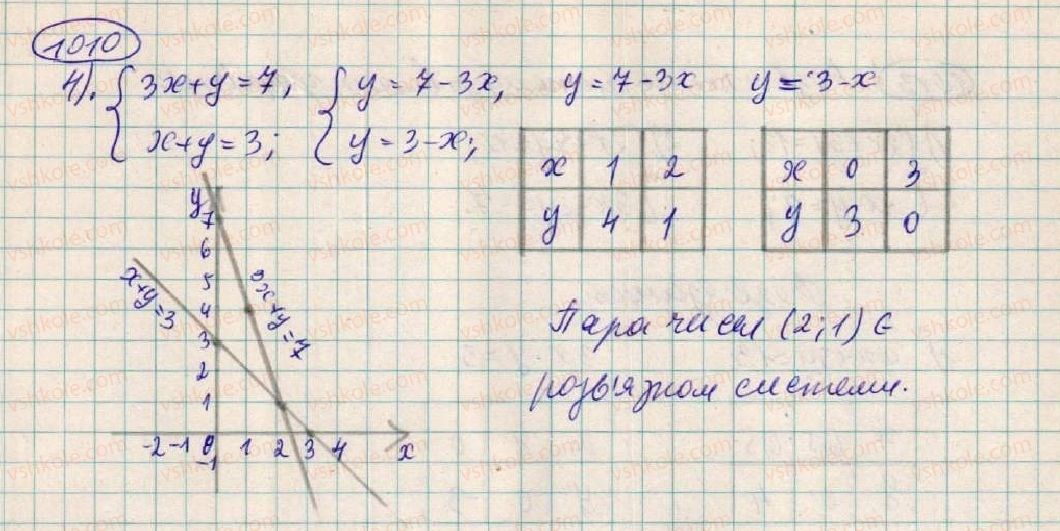 1010
1). { 3x+y=7, { y = 7-3x, y=7-3x y=3-x
x+y=3; y=3-x;
x 1 2 x 0 3
y 4 1 y 3 0
y
7
6
5
4
3
2
1
-2 -1 0 1 2 3 4 x
-1
x+y=3
3x+y=7
Пара чисел (2;1) є
розв'язком системи.
vshkole.com